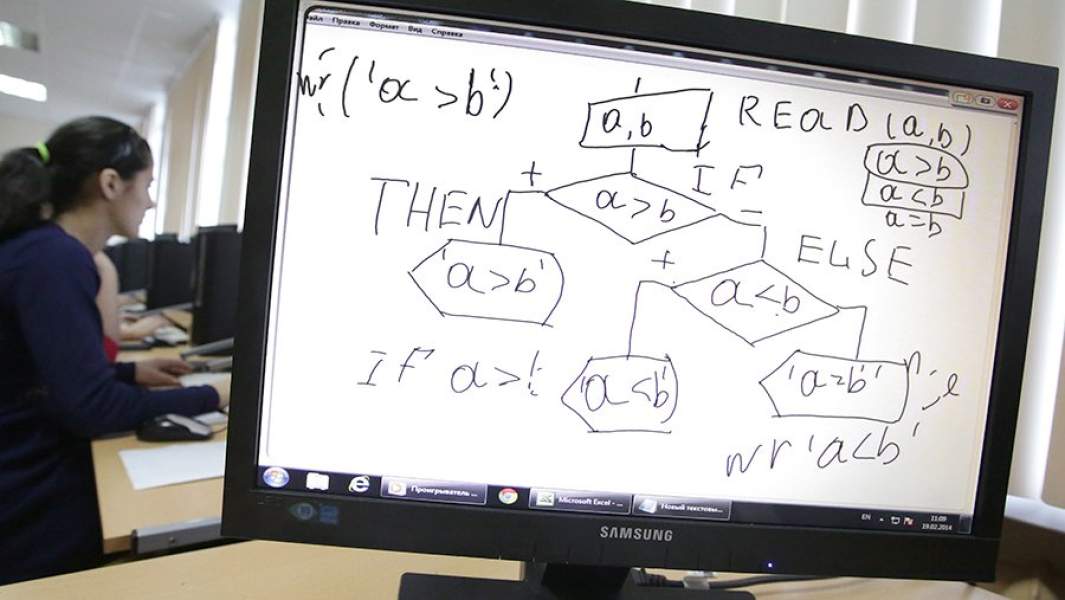 Правка Формат Вид Справка
wr('a>b')
a,b
READ(a,b)
a>b
a<b
a=b
+
IF
a>b
THEN
ELSE
'a>b'
+
a<b
IF a>
'a<b'
'a=b'
wr 'a<b'
Проигрыватель ...
Microsoft Excel - ...
Новый текстовы...
EN
11:09
19.02.2014
SAMSUNG